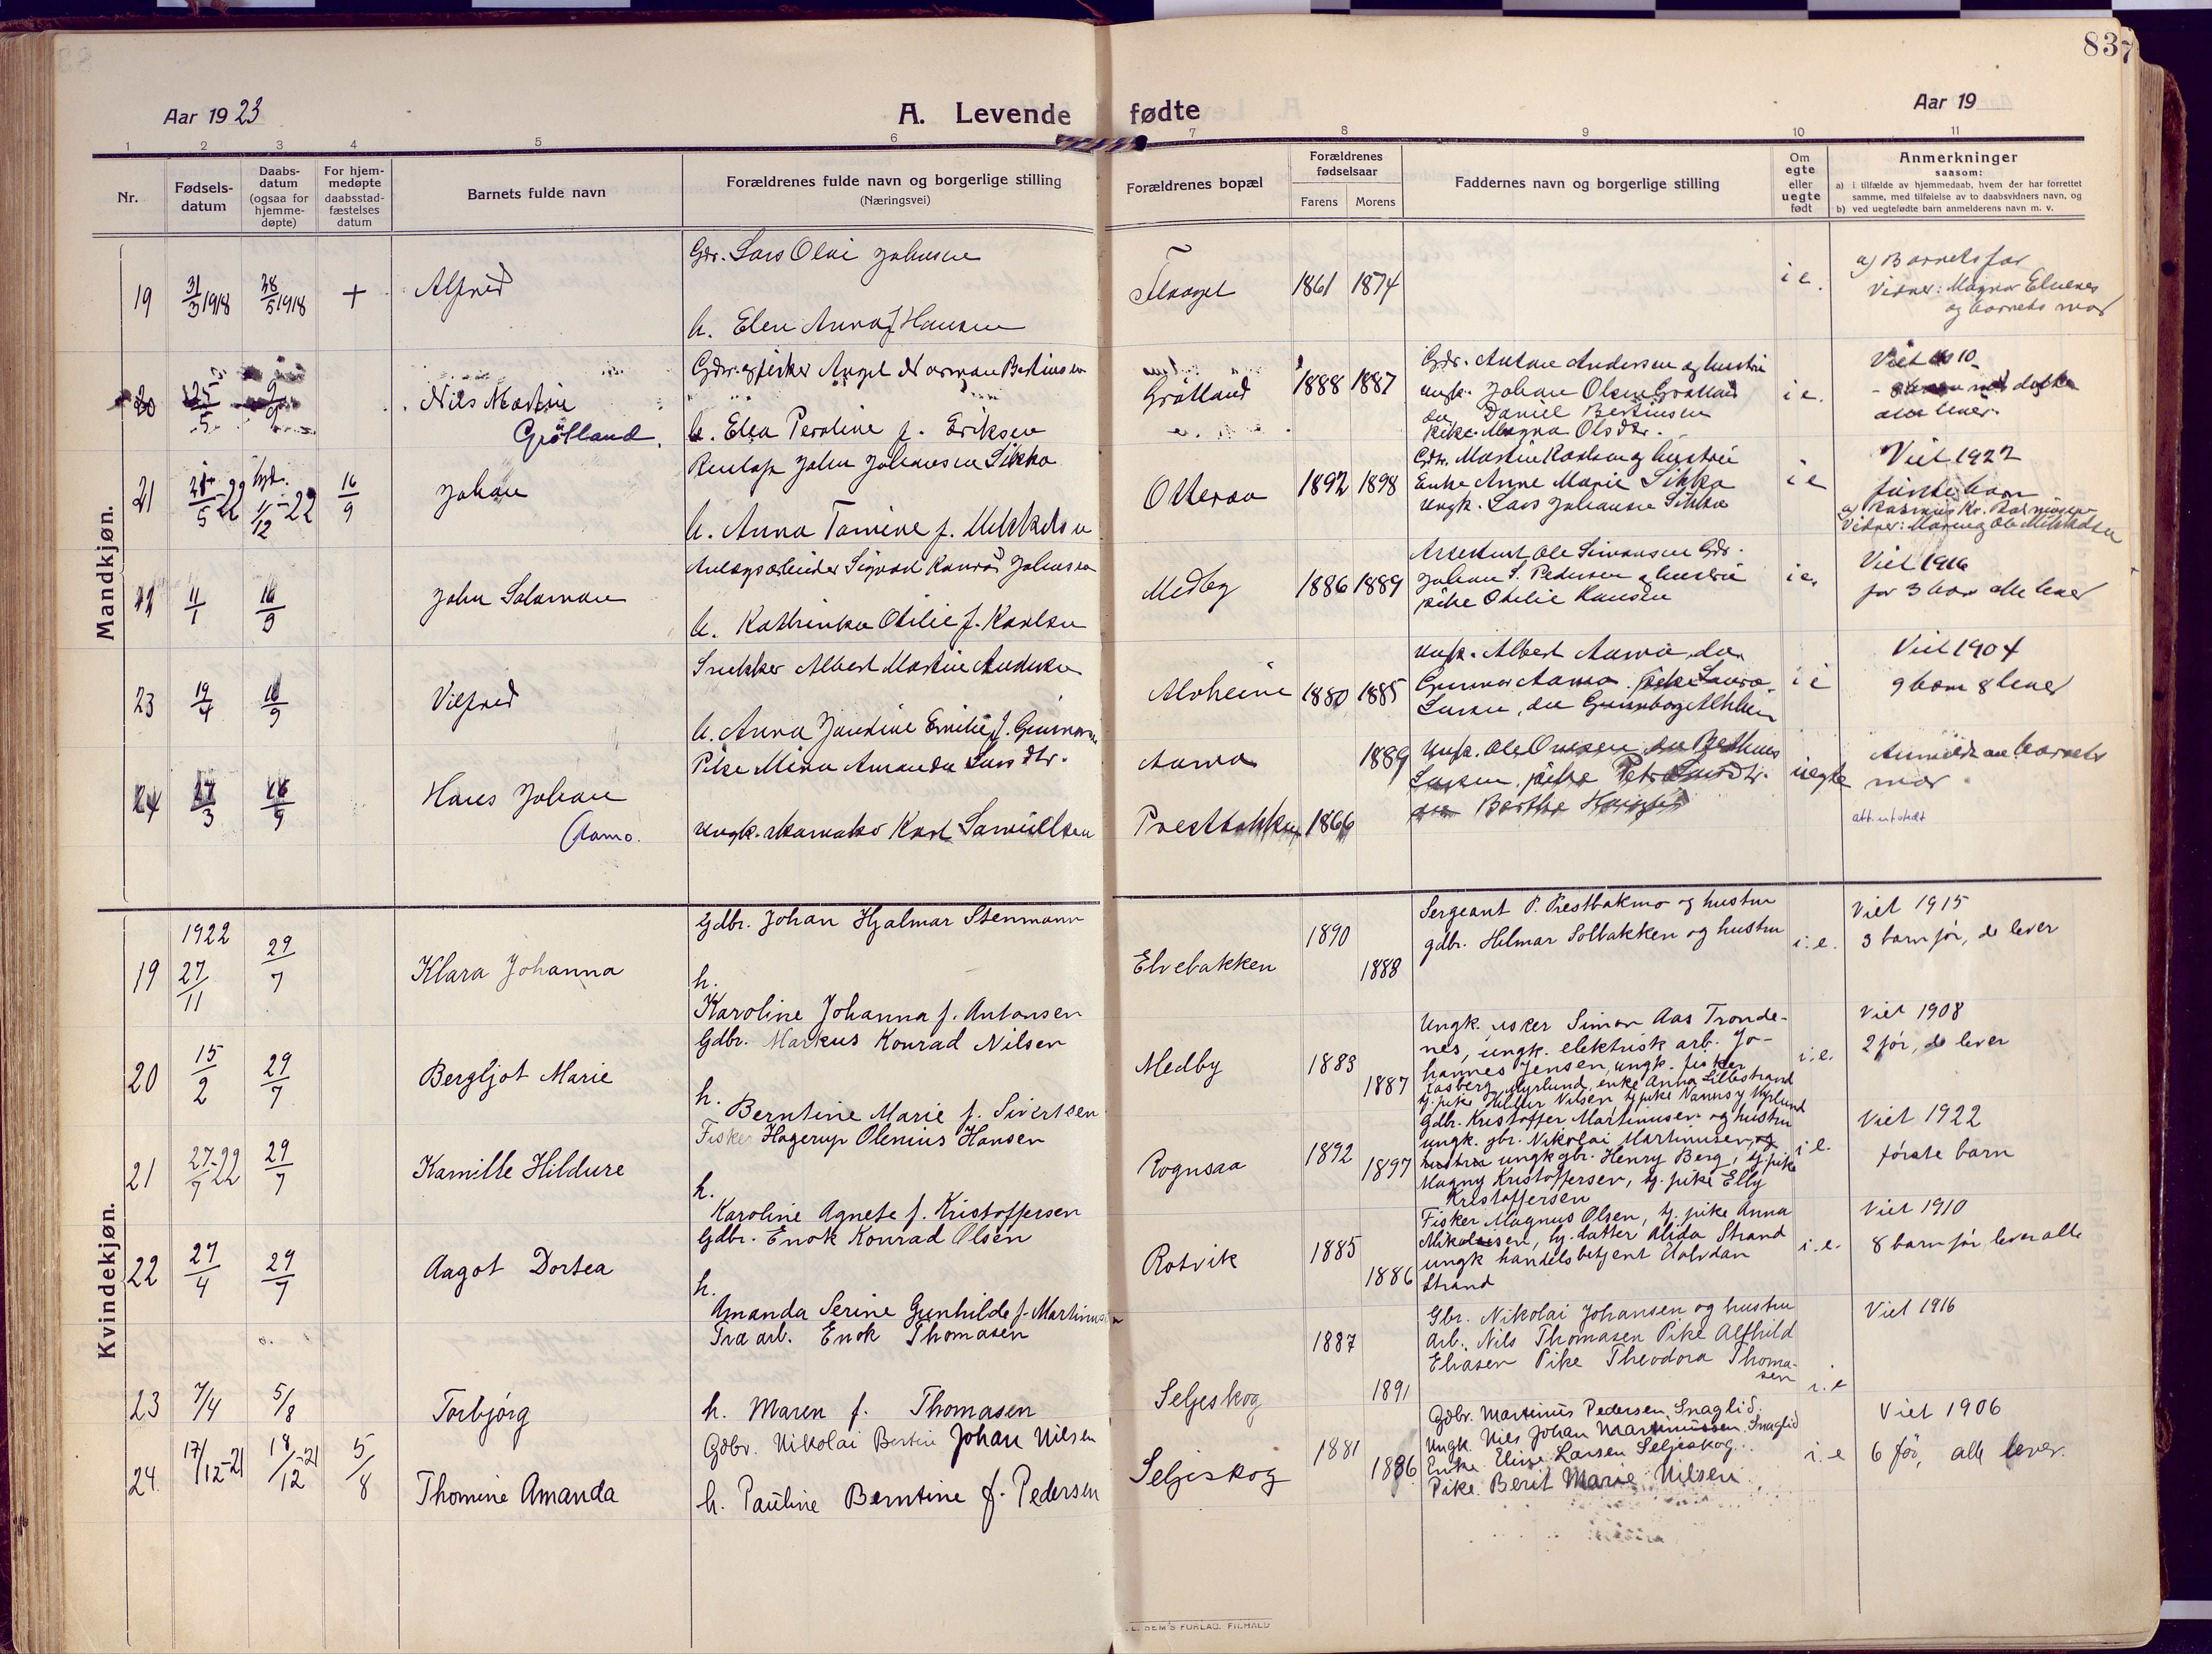 837
Aar 1923
A. Levende fødte
Aar 19
1 2 3 4 5 6 7 8 9 10 11
Nr.
Fødsels-
datum
Daabs-
datum
(ogsaa for
hjemme-
døpte)
For hjem-
medøpte
daabsstad-
fæstelses
datum
Barnets fulde navn
Forældrenes fulde navn og borgerlige stilling
(Næringsvei)
Forældrenes bopæl
Forældrenes
fødselsaar
Farens Morens
Faddernes navn og borgerlige stilling
Om
egte
eller
uegte
født
Anmerkninger
saasom:
a) i tilfælde av hjemmedaab, hvem der har forrettet
samme, med tilføielse av to daabsvidners navn, og
b) ved uegtefødte barn anmelderens navn m. v.
Mandkjøn.
19 31/3 1918 28/5 1918 + Alfred
Gdr. Lars Olai Johnsen
h. Elen Anna f. Hansen
1861 1874 i e.
a) Barnets far
Vidner: Magnor Elvenes
og barnets mor
20 25/5 9/9 Nils Martin
Grøtland.
Gdr. og fisker Angel Norman Bertinsen
h. Elea Peroline f. Eriksen
Grøtland 1888 1887
Gdr. Antone Andersen og hustru
ungk. Johan Olsen Grøtland
do Daniel Bertinsen
pike Magna Olsdtr.
i e.
Viet 1910
alle lever.
21 21/5-22 hjd. 1/12-22 16/9 Johan
Johan Johansen Sikko
h. Anna Tomine f. Mikkelsen
Otteraa 1892 1898
Gdr. Martin Karlsen og hustru
Enke Anne Marie Sikko
ungk. Lars Johansen Sikko
i e
Viet 1922
første barn
a) Rasmus Kr. Rasmussen
22 11/1 16/9 John Salamon
Anlægsarbeider Sigvart Konrad Johnsen
h. Kathinka Otilie f. Karlsen
Medby 1886 1889
Ole Simonsen Gdr.
Johan S. Pedersen og hustru
pike Otilie Hansen
i e.
Viet 1916
før 3 barn alle lever
23 19/4 16/9 Vilfred
Snekker Albert Martin Andersen
h. Anna Jensine Emilie f.
Alvheim 1880 1885
Ungk. Albert Aamo do
Gunnar Aamo. pike Laura
Larsen, do
i e
Viet 1904
9 barn 8 lever
24 27/3 16/9 Hans Johan
Aamo.
Pike Mina Amanda Larsdtr.
ungk. Karl Samuelsen
Aamo 1889
Prestbakken 1866
ungk. Ole Olsen do
Larsen, pike Petra Larsdtr.
do Berthe
uegte
Anmeldt av barnets
mor
att. utstedt
Kvindekjøn.
19 1922 27/11 29/7 Klara Johanna
Gdbr. Johan Hjalmar Stenmann
h.
Karoline Johanna f. Antonsen
Elvebakken 1890 1888
Sergeant P. Prestbakmo og hustru
gdbr. Hilmar Solbakken og hustru
i.e.
Viet 1915
3 barn før, de lever
20 15/2 29/7 Bergljot Marie
Gdbr. Markus Konrad Nilsen
h.
Berntine Marie f. Sivertsen
Medby 1883 1887
Ungk. fisker Simon Aas Tronde-
nes, ungk. elektrisk arb. Jo-
hannes Jensen, ungk. fisker
Aasberg Myrlund, enke Anna Lillestrand
tj. pike Hilter Nilsen tj. pike Nannsy Myrlund
i.e.
Viet 1908
2 før, de lever
21 27/7-22 29/7 Kamille Hildure
Fisker Hagerup Olenius Hansen
h.
Karoline Agnete f. Kristoffersen
Rognsaa 1892 1897
Gdbr. Kristoffer Martinusen og hustru
ungk. gbr. Nikolai Martinusen, og
hustru ungk gbr. Henry Berg, tj. pike
Magny Kristoffersen, tj. pike Elly
Kristoffersen
i.e.
Viet 1922
første barn
22 27/4 29/7 Aagot Dortea
Gdbr. Enok Konrad Olsen
h.
Amanda Serine Gunhilde f. Martinusen
Rotvik 1885 1886
Fisker Magnus Olsen, tj. pike Anna
Nikolaisen, tj. datter Alida Strand
ungk handelsbetjent Halvdan
Strand
i.e.
Viet 1910
8 barn før, lever alle
23 7/4 5/8 Torbjørg
Tra arb. Enok Thomasen
h. Maren f. Thomasen
Seljeskog 1887 1891
Gbr. Nikolai Johansen og hustru
Arb. Nils Thomasen Pike Alfhild
Eliasen Pike Theodora Thoma-
sen
i.e
Viet 1916
24 17/12-21 18/12-21 5/8 Thomine Amanda
Gdbr. Nikolai Bertin Johan Nilsen
h. Pauline Berntine f. Pedersen
Seljeskog 1881 1886
Gdbr. Martinus Pedersen, Snaglid.
Ungk. Nils Johan Martinussen Snaglid
Enke Elise Larsen Seljeskog.
Pike. Berit Marie Nilsen
i.e
Viet 1906
6 før, alle lever.
SEM'S FORLAG. F.HALD